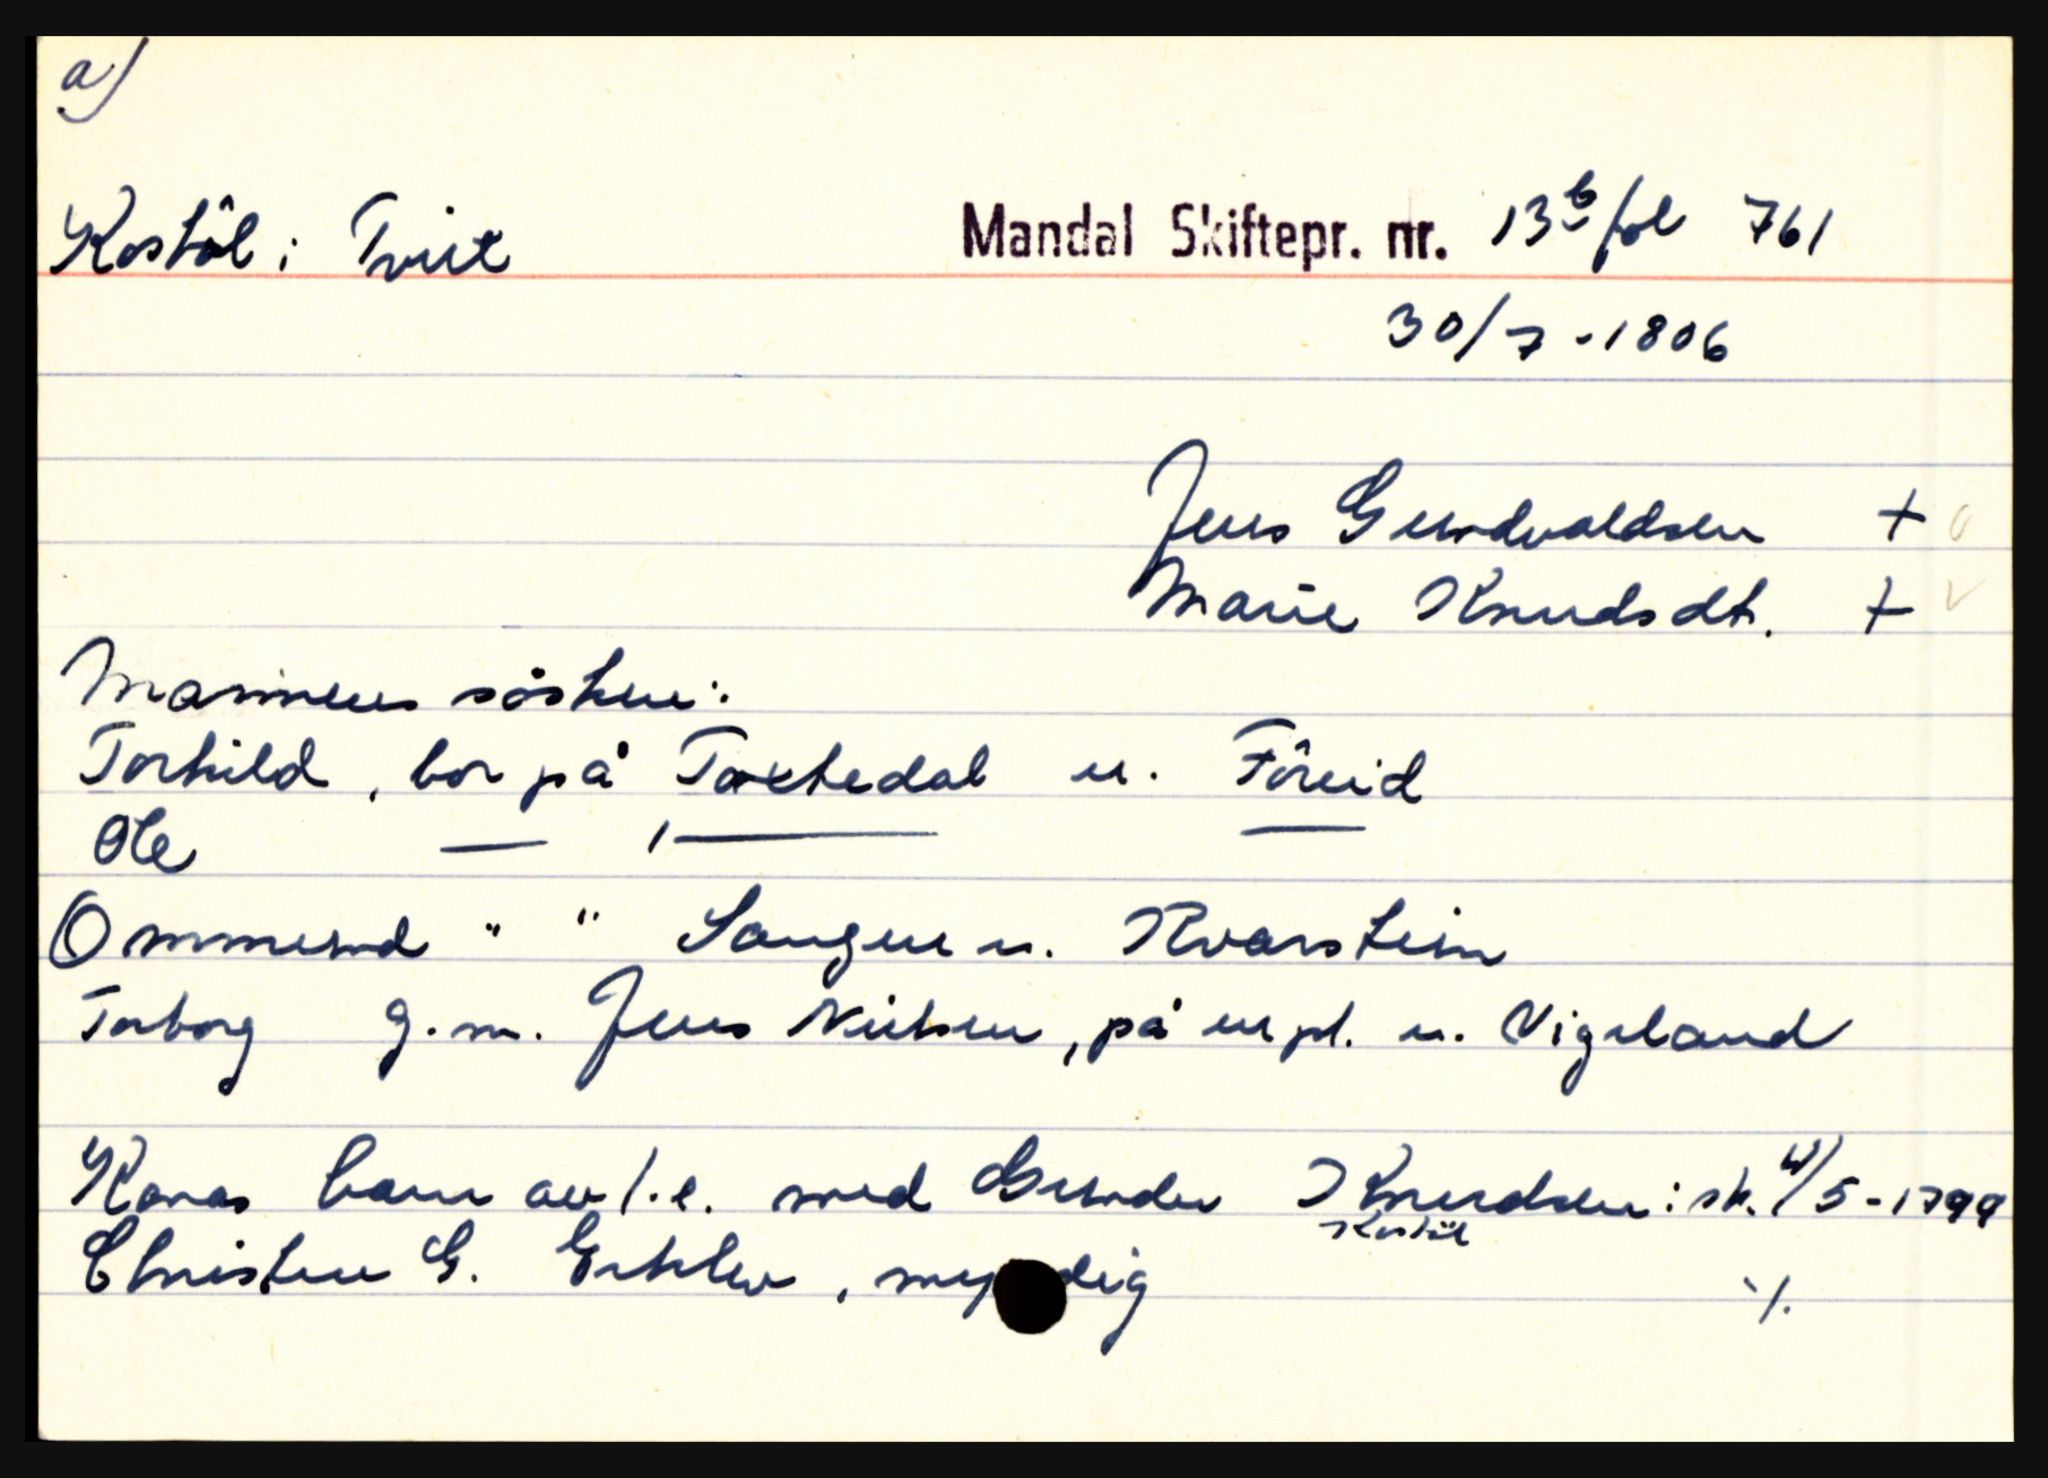 a)
Kostöl i Tveit Mandal Skiftepr. nr. 13b fol 761
30/7-1806
Jens Gundvaldsen +
Marie Knudsdt. +
Mannens søsken:
Torkild, bor på Toxtedal u. Föreid
Ole — — —
Ommund " " Saugen u. Kvarstein
Torborg g.m. Jens Nielsen, på en pl. u. Vigeland
Konas barn av 1.e. med Gunder Knudsen: sk. /5-1799
Kostöl
Christen G. , myndig ·/.